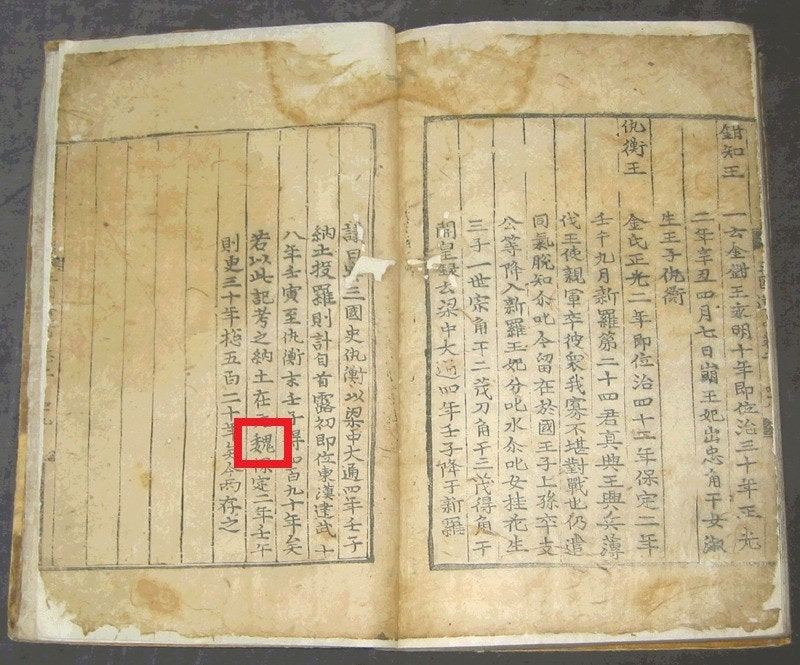 鉗知王 一云金鉗王永明十年即位治三十年正光
二年辛丑四月七日崩王妃出忠角干女淑
生王子仇衡
仇衡王 金氏正光二年即位治四十二年保定二年
壬午九月新羅第二十四君真興王興兵薄
伐王使親軍卒彼衆我寡不堪對戰也仍遣
同氣脫知尒叱今留在於國王子上孫卒支
公等降入新羅王妃分叱水尒叱女桂花生
三子一世宗角干二茂刀角干三茂得角干
開皇録云梁中大通四年壬子降于新羅
議曰三國史仇衡以梁中大通四年壬子
納土投羅則計自首露初即位東漢建武十
八年壬寅至仇衡末壬子得百九十年矣
若以此記考之納土在魏保定二年壬午
則更三十年揔五百二十年矣今兩存之